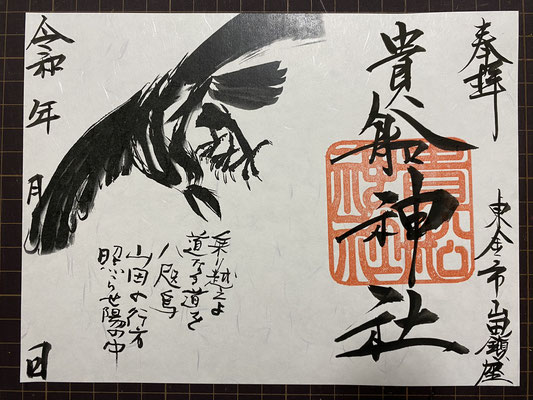 奉拝
東金市山田鎮座
貴船神社
貴船
神社
乗り越えよ
道なき道を
八咫烏
山田の行方
照らせ陽の中
令和 年 月 日